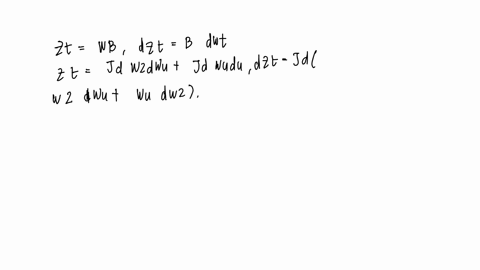 Zt = WB, dzt = B dwt
Zt = Jd W2dWu + Jd Wudu, dZt = Jd(
W2 dWu + Wu dw2).